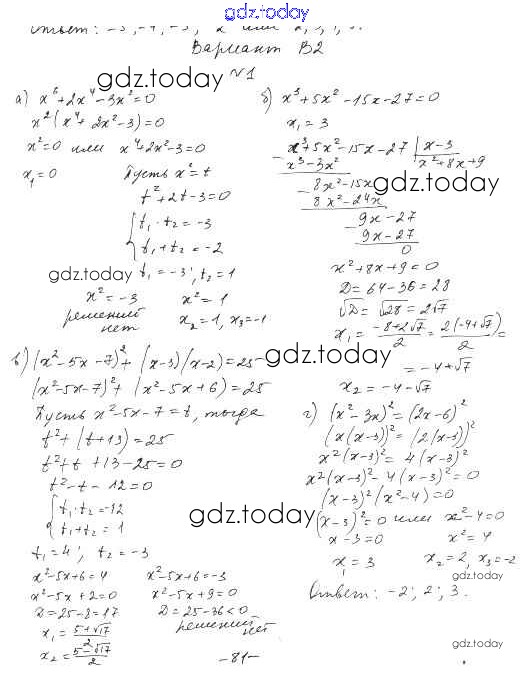 gdz.today
Ответ:
Вариант B2
№1
а) x⁶+2x⁴-3x²=0
x²(x⁴+2x²-3)=0
x²=0 или x⁴+2x²-3=0
x₁=0 Пусть x²=t
t²+2t-3=0
t₁·t₂=-3
t₁+t₂=-2
t₁=-3; t₂=1
x²=-3 x²=1
решений нет x₂=1, x₃=-1
б) x³+5x²-15x-27=0
x₁=3
x³+5x²-15x-27 | x-3
x³-3x² x²+8x+9
8x²-15x
8x²-24x
9x-27
9x-27
0
x²+8x+9=0
D=64-36=28
√D=√28=2√7
x₁=(-8+2√7)/2=2(-4+√7)/2=
=-4+√7
x₂=-4-√7
в) (x²-5x-7)²+(x-3)(x-2)=25
(x²-5x-7)²+(x²-5x+6)=25
Пусть x²-5x-7=t, тогда
t²+(t+13)=25
t²+t+13-25=0
t²-t-12=0
t₁·t₂=-12
t₁+t₂=1
t₁=4; t₂=-3
x²-5x+6=4 x²-5x+6=-3
x²-5x+2=0 x²-5x+9=0
D=25-8=17 D=25-36<0
x₁=(5+√17)/2 решений нет
x₂=(5-√17)/2
г) (x²-3x)²=(2x-6)²
(x(x-3))²=(2(x-3))²
x²(x-3)²=4(x-3)²
x²(x-3)²-4(x-3)²=0
(x-3)²(x²-4)=0
(x-3)²=0 или x²-4=0
x-3=0 x²=4
x₁=3 x₂=2, x₃=-2
Ответ: -2; 2; 3.
-81-
gdz.today
gdz.today
gdz.today
gdz.today
gdz.today
gdz.today
gdz.today